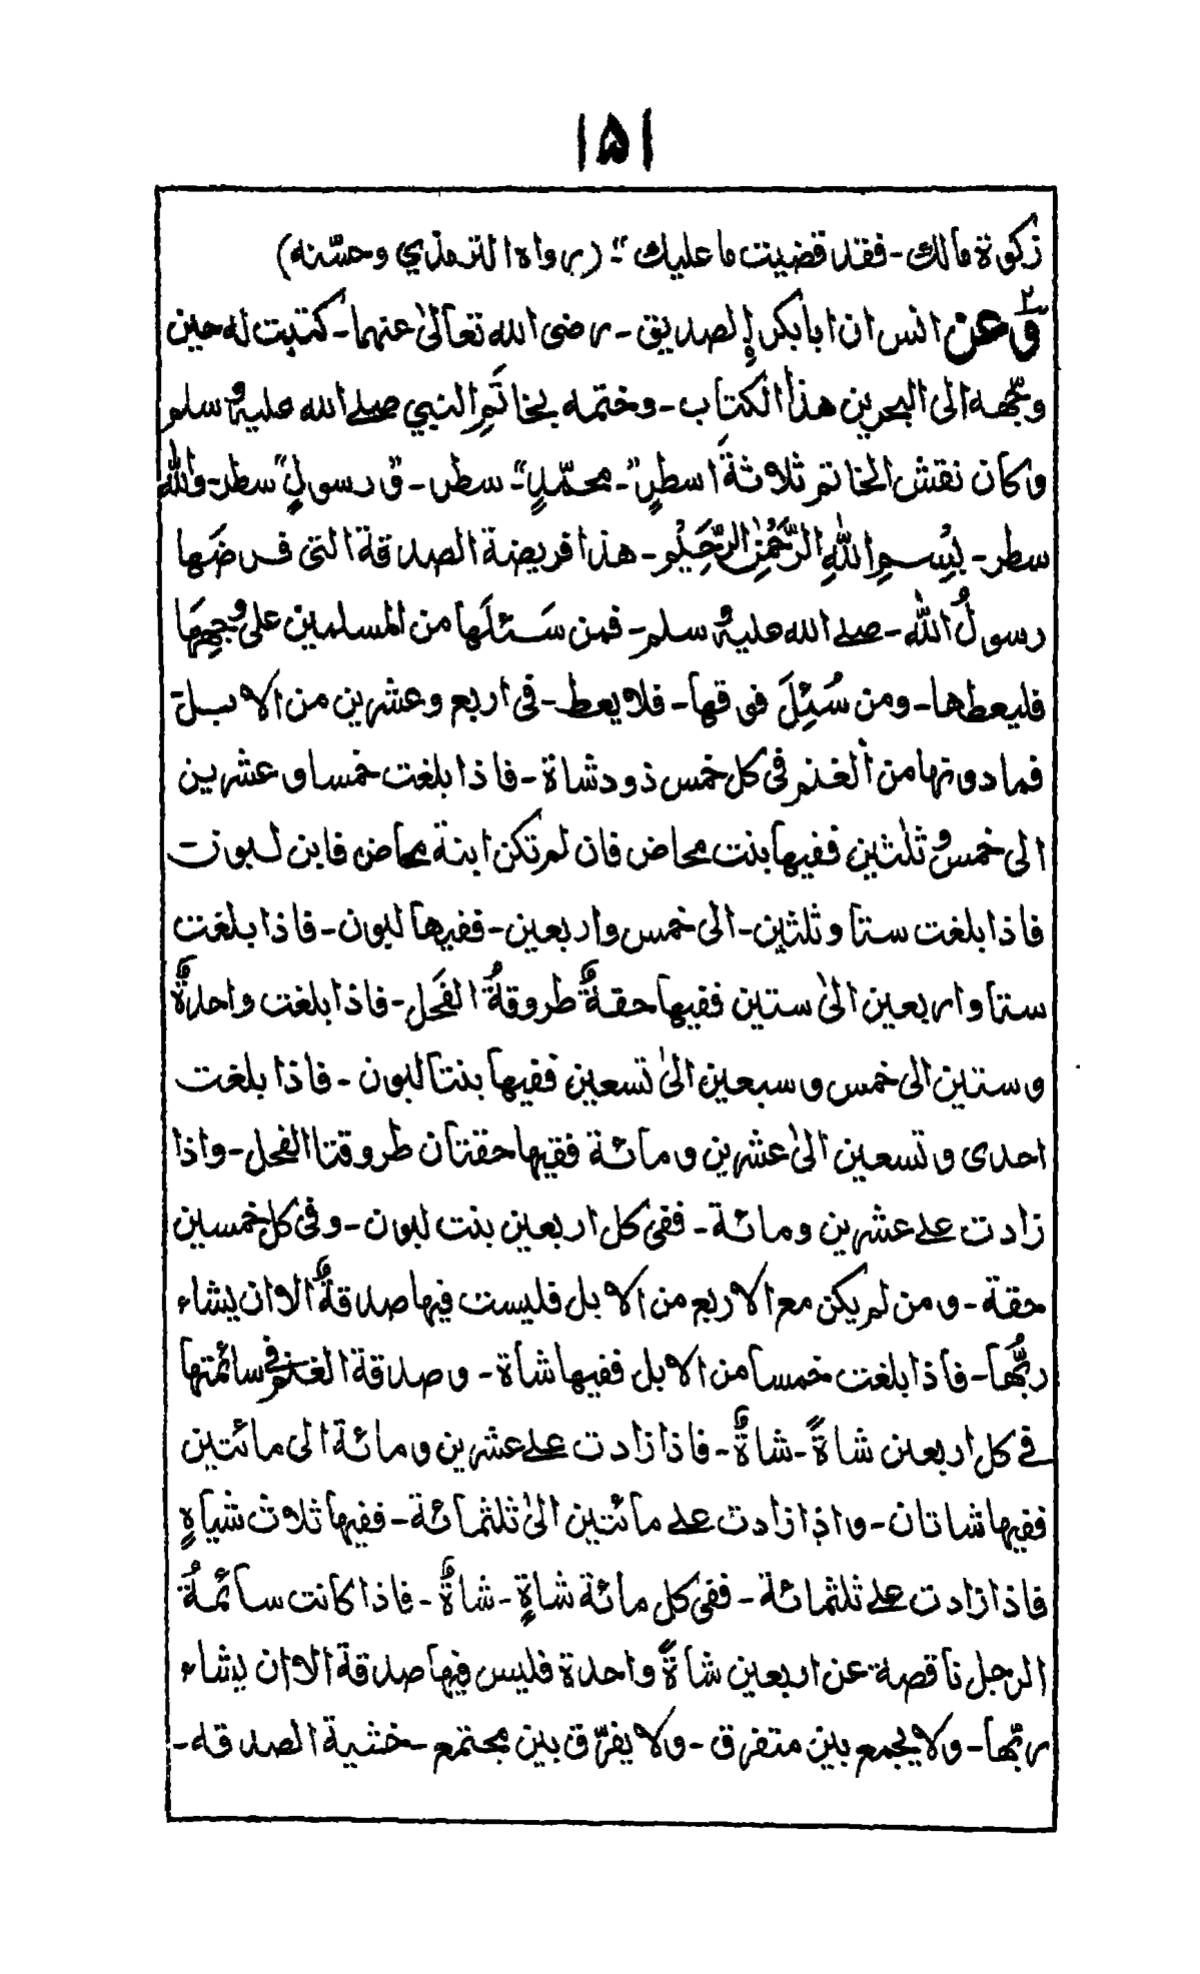 ١٥١
زكوة مالك - فقد قضيت ما عليك"؛ (رواه الترمذي وحسّنه)
٢ وَعن انس ان ابا بكر إلصديق - رضى الله تعالىٰ عنهما - كتبت له حين
وجّهه الى البحرين هذا الكتاب - وختمه بخاتَمِ النبي صلے الله عليه وسلم
وكان نقش الخاتم ثلاثةَ اسطرٍ "- محمّدٍ"- سطر - وَ "رسولٍ" سطر - والله
سطر - بِسْمِ اللّٰهِ الرَّحْمٰنِ الرَّحِيْمِ - هذا فريضة الصدقة التى فرضَها
رسولُ اللّٰه - صلے الله عليه وسلم - فمن سَئلَها من المسلمين على وجهِهَا
فليعطها - ومن سُئِلَ فوقها - فلا يعط - فى اربع وعشرين من الابل
فما دونها من الغنم فى كل خمس ذود شاة - فاذا بلغت خمسا و عشرين
الى خمس و ثلثين ففيها بنت محاض فان لم تكن ابنة محاض فابن لبون
فاذا بلغت ستا و ثلثين - الى خمس واربعين - ففيها لبون - فاذا بلغت
ستا واربعين الىٰ ستين ففيها حقةٌ طروقةُ الفَحل - فاذا بلغت واحدةٌ
و ستين الى خمس و سبعين الىٰ تسعين ففيها بنتا لبون - فاذا بلغت
احدى و تسعين الىٰ عشرين و مائة ففيها حقتان طروقتا الفحل - واذا
زادت علے عشرين ومائة - ففى كل اربعين بنت لبون - وفى كل خمسين
حقة - ومن لم يكن مع الاربع من الابل فليست فيها صدقةٌ الا ان يشاء
ربُّها - فاذا بلغت خمسا من الابل ففيها شاة - وصدقة الغنم فى سائمتها
فے كل اربعين شاةً - شاةٌ - فاذا زادت علے عشرين ومائة الى مائتين
ففيها شاتان - واذا زادت علے مائتين الىٰ ثلثمائة - ففيها ثلاث شياهٍ
فاذا زادت علے ثلثمائة - ففى كل مائة شاةٍ - شاةٌ - فاذا كانت سائمةُ
الرجل ناقصة عن اربعين شاةً واحدة فليس فيها صدقة الا ان يشاء
ربّها - ولا يجمع بين متفرق - ولا يفرّق بين مجتمع - خشية الصدقه -